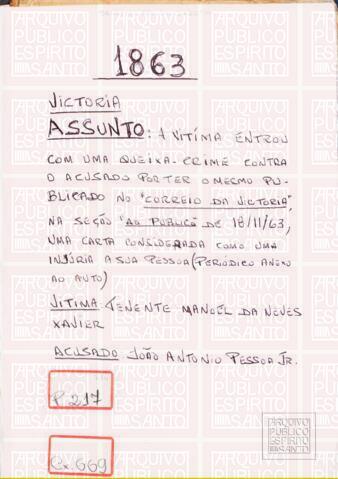 1863
VICTORIA
ASSUNTO: A VITÍMA ENTROU
COM UMA QUEIXA-CRIME CONTRA
O ACUSADO POR TER O MESMO PU-
BLICADO NO "CORREIO DA VICTORIA",
NA SEÇÃO "AO PÚBLICO" DE 18/11/63,
UMA CARTA CONSIDERADA COMO UMA
INJÚRIA A SUA PESSOA (PERIÓDICO ANEXO
AO AUTO)
VITIMA TENENTE MANOEL DA NEVES
XAVIER
ACUSADO JOÃO ANTONIO PESSOA JR.
P.217
Cx.669
ARQUIVO
PÚBLICO
ESPÍRITO
SANTO